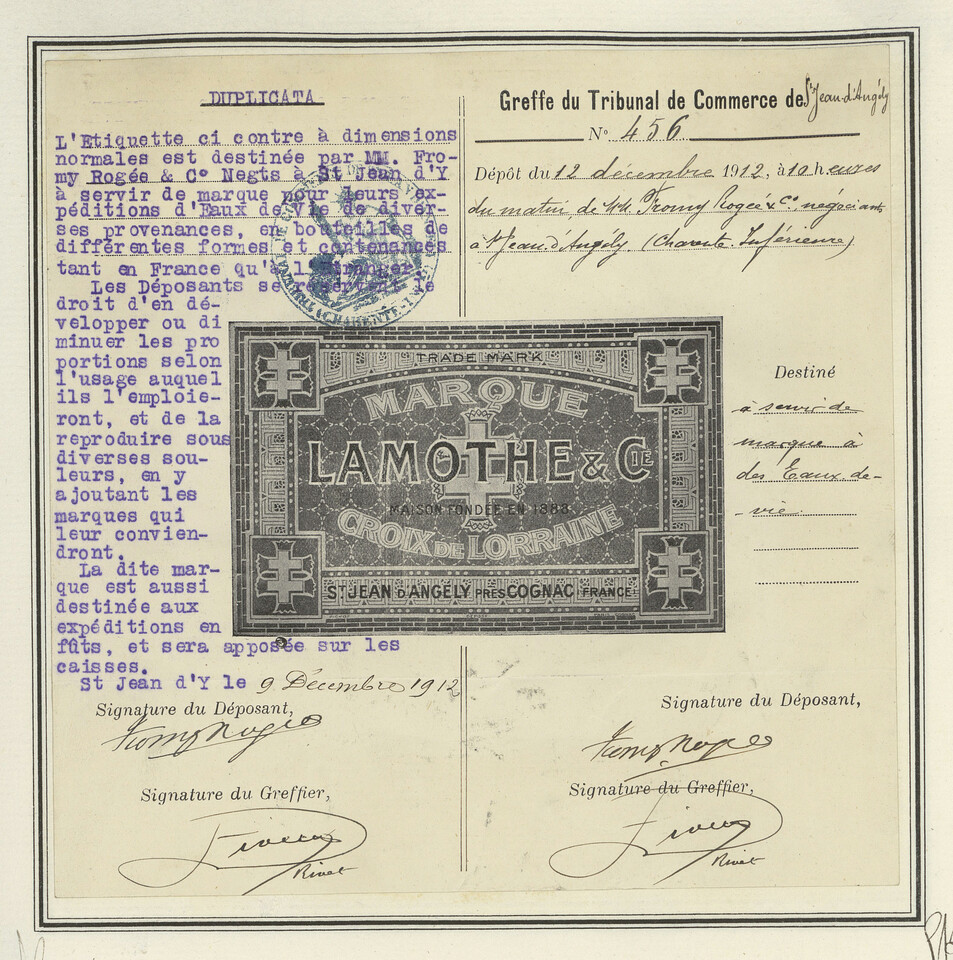 DUPLICATA
L'Etiquette ci contre à dimensions
normales est destinée par MM. Fro-
my Rogée & C° Negts à St Jean d'Y
à servir de marque pour leurs ex-
péditions d'Eaux de Vie de diver-
ses provenances, en bouteilles de
différentes formes et contenances
tant en France qu'à l'Etranger
Les Déposants se réservent le
droit d'en dé-
velopper ou di
minuer les pro
portions selon
l'usage auquel
ils l'emploie-
ront, et de la
reproduire sous
diverses sou-
leurs, en y
ajoutant les
marques qui
leur convien-
dront.
La dite mar-
que est aussi
destinée aux
expéditions en
fûts, et sera apposée sur les
caisses.
St Jean d'Y le 9 Décembre 1912
Signature du Déposant,
Fromy Rogée
Signature du Greffier,
Rivet
Greffe du Tribunal de Commerce de St Jean-d'Angély
N° 456
Dépôt du 12 décembre 1912, à 10 heures
du matin, de MM. Fromy Rogée & Co. négociants
à St Jean-d'Angély (Charente-Inférieure)
TRADE MARK
MARQUE
LAMOTHE & CIE
MAISON FONDÉE EN 1883
CROIX DE LORRAINE
ST JEAN D'ANGELY PRES COGNAC (FRANCE)
Destiné
à servir de
marque à
des Eaux-de-
-vie.
Signature du Déposant,
Fromy Rogée
Signature du Greffier,
Rivet